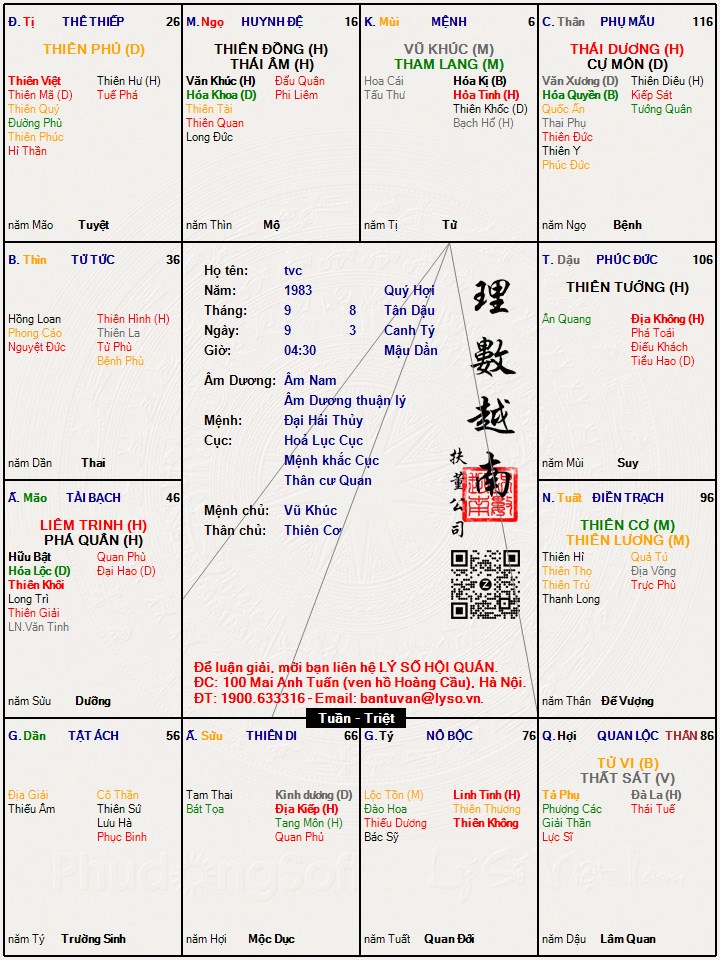 Đ. Tị THÊ THIẾP 26
THIÊN PHỦ (D)
Thiên Việt Thiên Hư (H)
Thiên Mã (D) Tuế Phá
Thiên Quý
Đường Phù
Thiên Phúc
Hỉ Thần
năm Mão Tuyệt
M. Ngọ HUYNH ĐỆ 16
THIÊN ĐỒNG (H)
THÁI ÂM (H)
Văn Khúc (H) Đẩu Quân
Hóa Khoa (D) Phi Liêm
Thiên Tài
Thiên Quan
Long Đức
năm Thìn Mộ
K. Mùi MỆNH 6
VŨ KHÚC (M)
THAM LANG (M)
Hoa Cái Hóa Kị (B)
Tấu Thư Hỏa Tinh (H)
Thiên Khốc (D)
Bạch Hổ (H)
năm Tị Tử
C. Thân PHỤ MẪU 116
THÁI DƯƠNG (H)
CỰ MÔN (D)
Văn Xương (D) Thiên Diêu (H)
Hóa Quyền (B) Kiếp Sát
Quốc Ấn Tướng Quân
Thai Phụ
Thiên Đức
Thiên Y
Phúc Đức
năm Ngọ Bệnh
B. Thìn TỬ TỨC 36
Hồng Loan Thiên Hình (H)
Phong Cáo Thiên La
Nguyệt Đức Tử Phù
Bệnh Phù
năm Dần Thai
Họ tên: tvc
Năm: 1983 Quý Hợi
Tháng: 9 8 Tân Dậu
Ngày: 9 3 Canh Tý
Giờ: 04:30 Mậu Dần
Âm Dương: Âm Nam
Âm Dương thuận lý
Mệnh: Đại Hải Thủy
Cục: Hoả Lục Cục
Mệnh khắc Cục
Thân cư Quan
Mệnh chủ: Vũ Khúc
Thân chủ: Thiên Cơ
理數越南
扶董公司
Z
Để luận giải, mời bạn liên hệ LÝ SỐ HỘI QUÁN.
ĐC: 100 Mai Anh Tuấn (ven hồ Hoàng Cầu), Hà Nội.
ĐT: 1900.633316 - Email: bantuvan@lyso.vn.
T. Dậu PHÚC ĐỨC 106
THIÊN TƯỚNG (H)
Ân Quang Địa Không (H)
Phá Toái
Điếu Khách
Tiểu Hao (D)
năm Mùi Suy
Ấ. Mão TÀI BẠCH 46
LIÊM TRINH (H)
PHÁ QUÂN (H)
Hữu Bật Quan Phù
Hóa Lộc (D) Đại Hao (D)
Thiên Khôi
Long Trì
Thiên Giải
LN.Văn Tinh
năm Sửu Dưỡng
N. Tuất ĐIỀN TRẠCH 96
THIÊN CƠ (M)
THIÊN LƯƠNG (M)
Thiên Hỉ Quả Tú
Thiên Thọ Địa Võng
Thiên Trù Trực Phù
Thanh Long
năm Thân Đế Vượng
Tuần - Triệt
G. Dần TẬT ÁCH 56
Địa Giải Cô Thần
Thiếu Âm Thiên Sứ
Lưu Hà
Phục Binh
năm Tý Trường Sinh
Ấ. Sửu THIÊN DI 66
Tam Thai Kình dương (D)
Bát Tọa Địa Kiếp (H)
Tang Môn (H)
Quan Phủ
năm Hợi Mộc Dục
G. Tý NÔ BỘC 76
Lộc Tồn (M) Linh Tinh (H)
Đào Hoa Thiên Thương
Thiếu Dương Thiên Không
Bác Sỹ
năm Tuất Quan Đới
Q. Hợi QUAN LỘC THÂN 86
TỬ VI (B)
THẤT SÁT (V)
Tả Phụ Đà La (H)
Phượng Các Thái Tuế
Giải Thần
Lực Sĩ
năm Dậu Lâm Quan